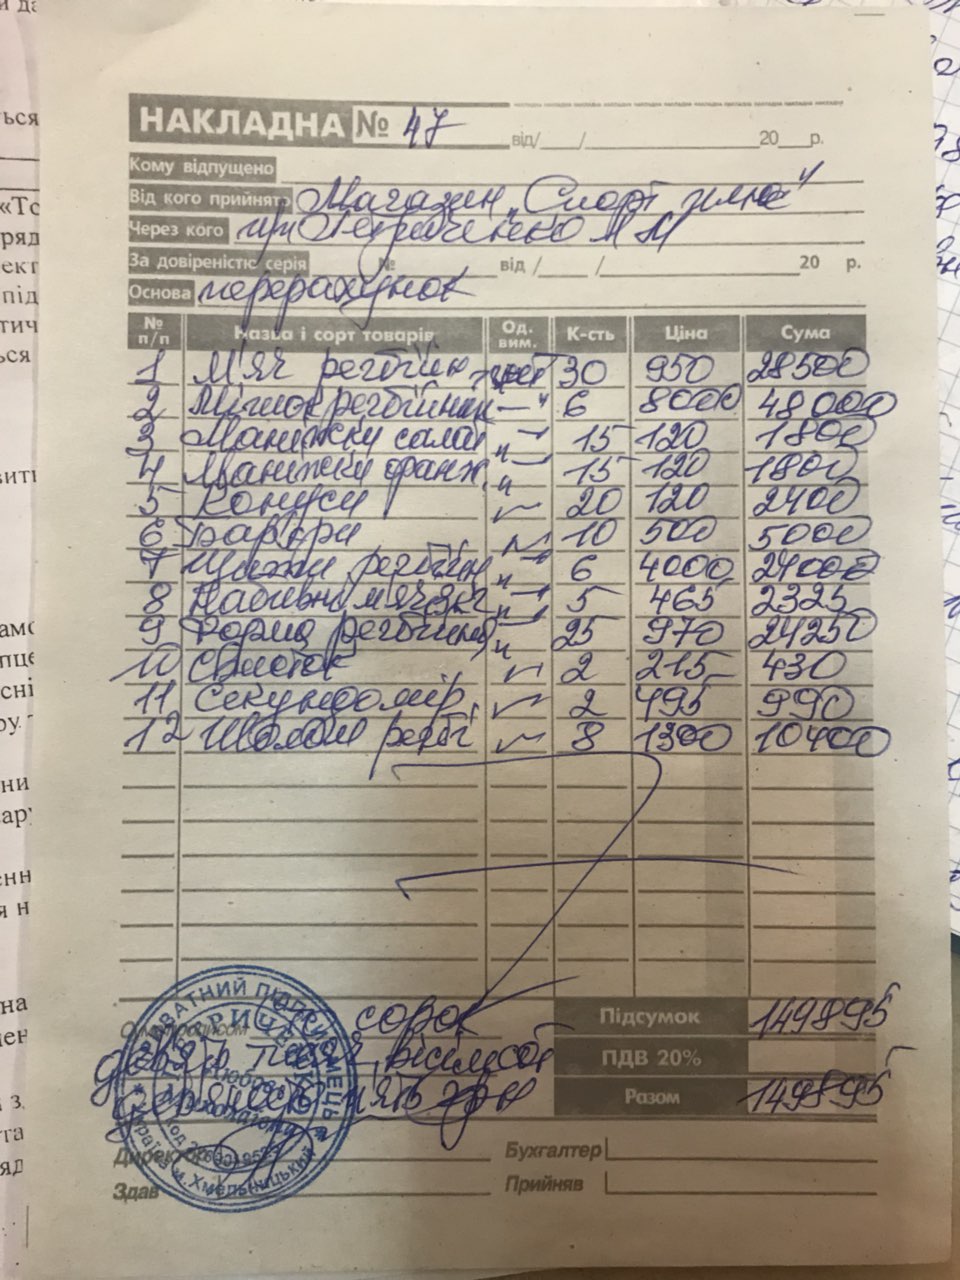 НАКЛАДНА № 47 від/ / 20 р.
Кому відпущено
Від кого прийнято Магазин „Спорт плюс"
Через кого пп Петриченко
За довіреністю серія № від / / 20 р.
Основа перерахунок
№ п/п Назва і сорт товарів Од. вим. К-сть Ціна Сума
1 М'яч регбійн 30 950 28500
2 Мішок регбійний —"— 6 8000 48000
3 Маніжки салат —"— 15 120 1800
4 Маніжки оранж. —"— 15 120 1800
5 Конуси 20 120 2400
6 Бар'єри 10 500 5000
7 Щитки регбійн —"— 6 4000 24000
8 Набивні м'ячі 3кг —"— 5 465 2325
9 Форма регбійна —"— 25 970 24250
10 Свисток 2 215 430
11 Секундомір 2 495 990
12 Шолом регбі 8 1300 10400
сорок Підсумок 149895
дев'ять тисяч вісімсот ПДВ 20%
дев'яносто п'ять грн Разом 149895
Директор Бухгалтер
Здав Прийняв
ПРИВАТНИЙ ПІДПРИЄМЕЦЬ
Україна м.Хмельницький